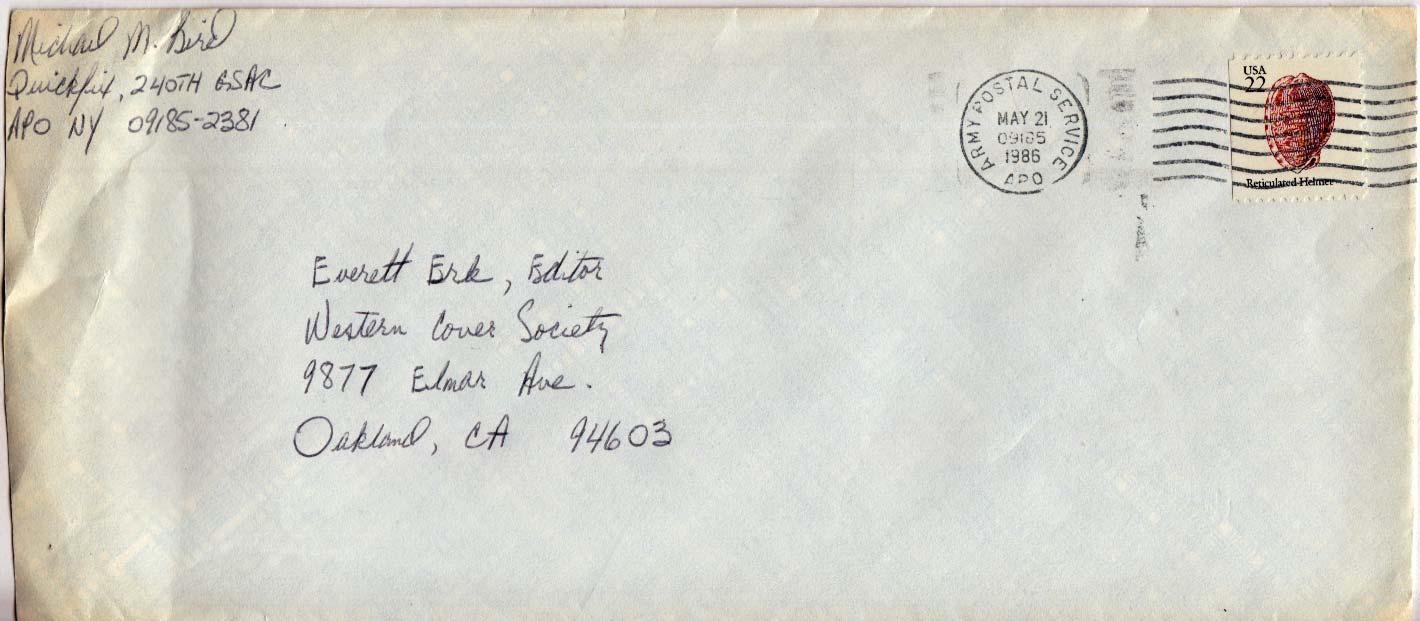 Michael M. Bird
Quickfix, 240TH GSAC
APO NY 09185-2381
ARMY POSTAL SERVICE
MAY 21
09185
1986
APO
USA
22
Reticulated Helmet
Everett Erle, Editor
Western Cover Society
9877 Elmar Ave.
Oakland, CA 94603